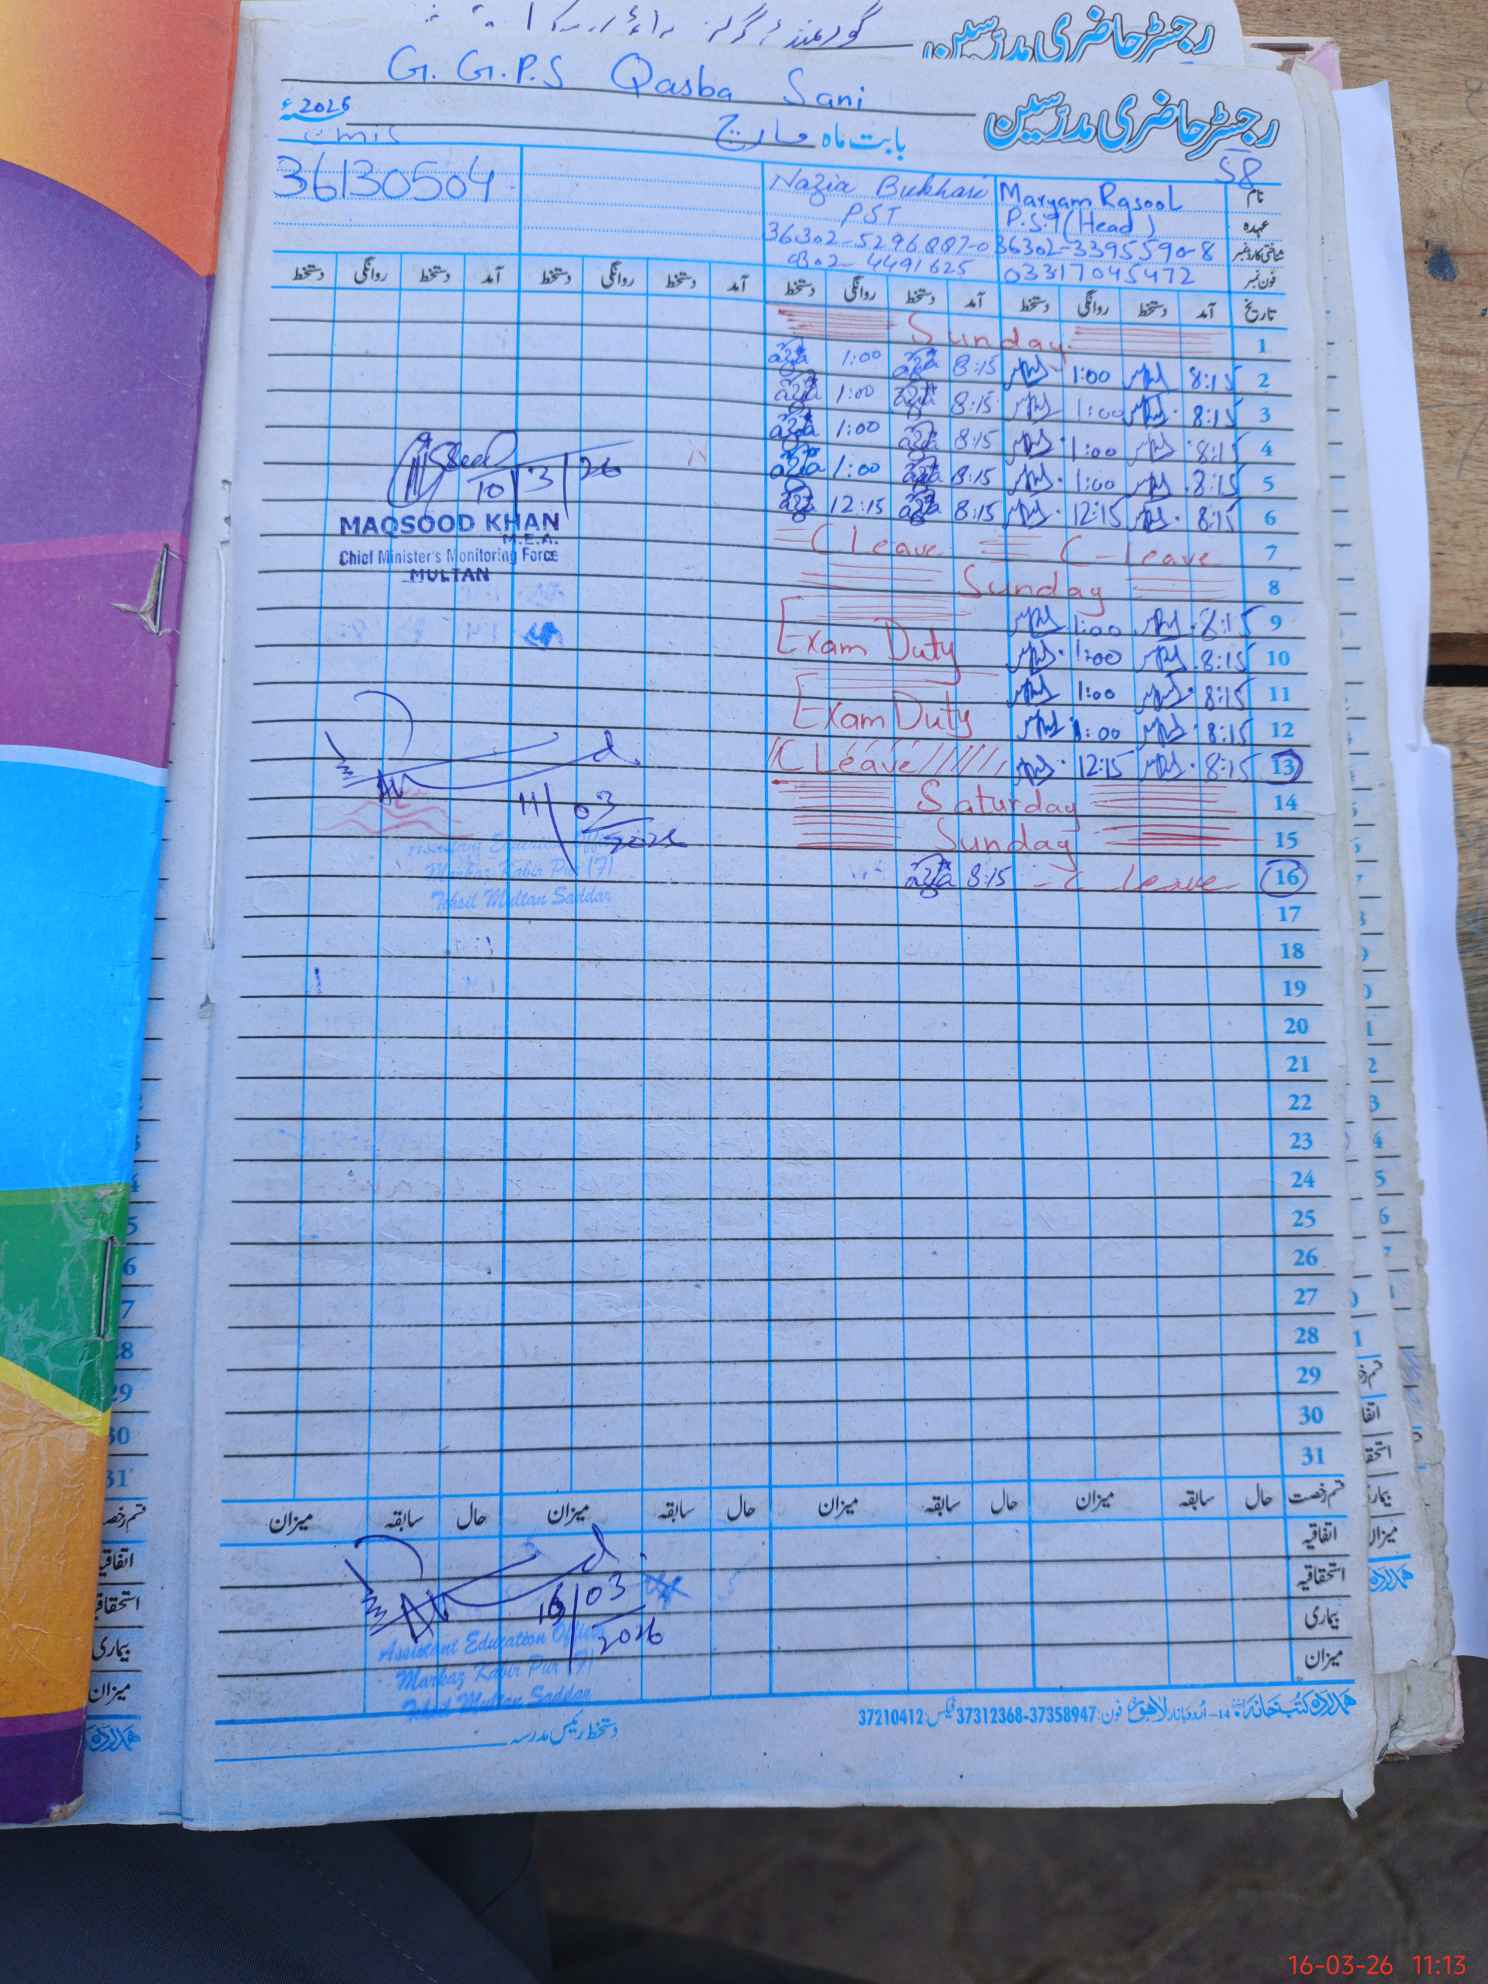 رجسٹر حاضری مدرسین
G.G.P.S Qasba Sani
رجسٹر حاضری مدرسین
2026ء
بابت ماہ مارچ
emis
58
36130504
نام Maryam Rasool Nazia Bukhari
عہدہ P.S.T (Head) PST
شناختی کارڈ نمبر 36302-3395590-8 36302-5296887-0
فون نمبر 03317045472 0302-4491625
تاریخ آمد دستخط روانگی دستخط آمد دستخط روانگی دستخط آمد دستخط روانگی دستخط آمد دستخط روانگی دستخط
1 Sunday
2 8:15 1:00 8:15 1:00
3 8:15 1:00 8:15 1:00
4 8:15 1:00 8:15 1:00
5 8:15 1:00 8:15 1:00
6 8:15 12:15 8:15 12:15
7 C-leave C leave
8 Sunday
9 8:15 1:00
Exam Duty
10 8:15 1:00
11 8:15 1:00
Exam Duty
12 8:15 1:00
13 8:15 12:15 C Leave
14 Saturday
15 Sunday
16 C leave 8:15
17
18
19
20
21
22
23
24
25
26
27
28
29
30
31
10/3/26
MAQSOOD KHAN
M.E.A.
Chief Minister's Monitoring Force
MULTAN
11/03/2026
Assistant Education Officer
Markaz Kabir Pur (F)
Tehsil Multan Saddar
قسم رخصت حال سابقہ میزان حال سابقہ میزان حال سابقہ میزان حال سابقہ میزان
اتفاقیہ
استحقاقیہ
بیماری
میزان
16/03/2026
Assistant Education Officer
Markaz Kabir Pur (F)
Tehsil Multan Saddar
ہمدرد کتب خانہ 14-اردو بازار لاہور فون: 37358947-37312368 فیکس: 37210412
دستخط رئیس مدرسہ
5
6
7
28
29
30
31
قسم رخصت
اتفاقیہ
استحقاقیہ
بیماری
میزان
16-03-26 11:13